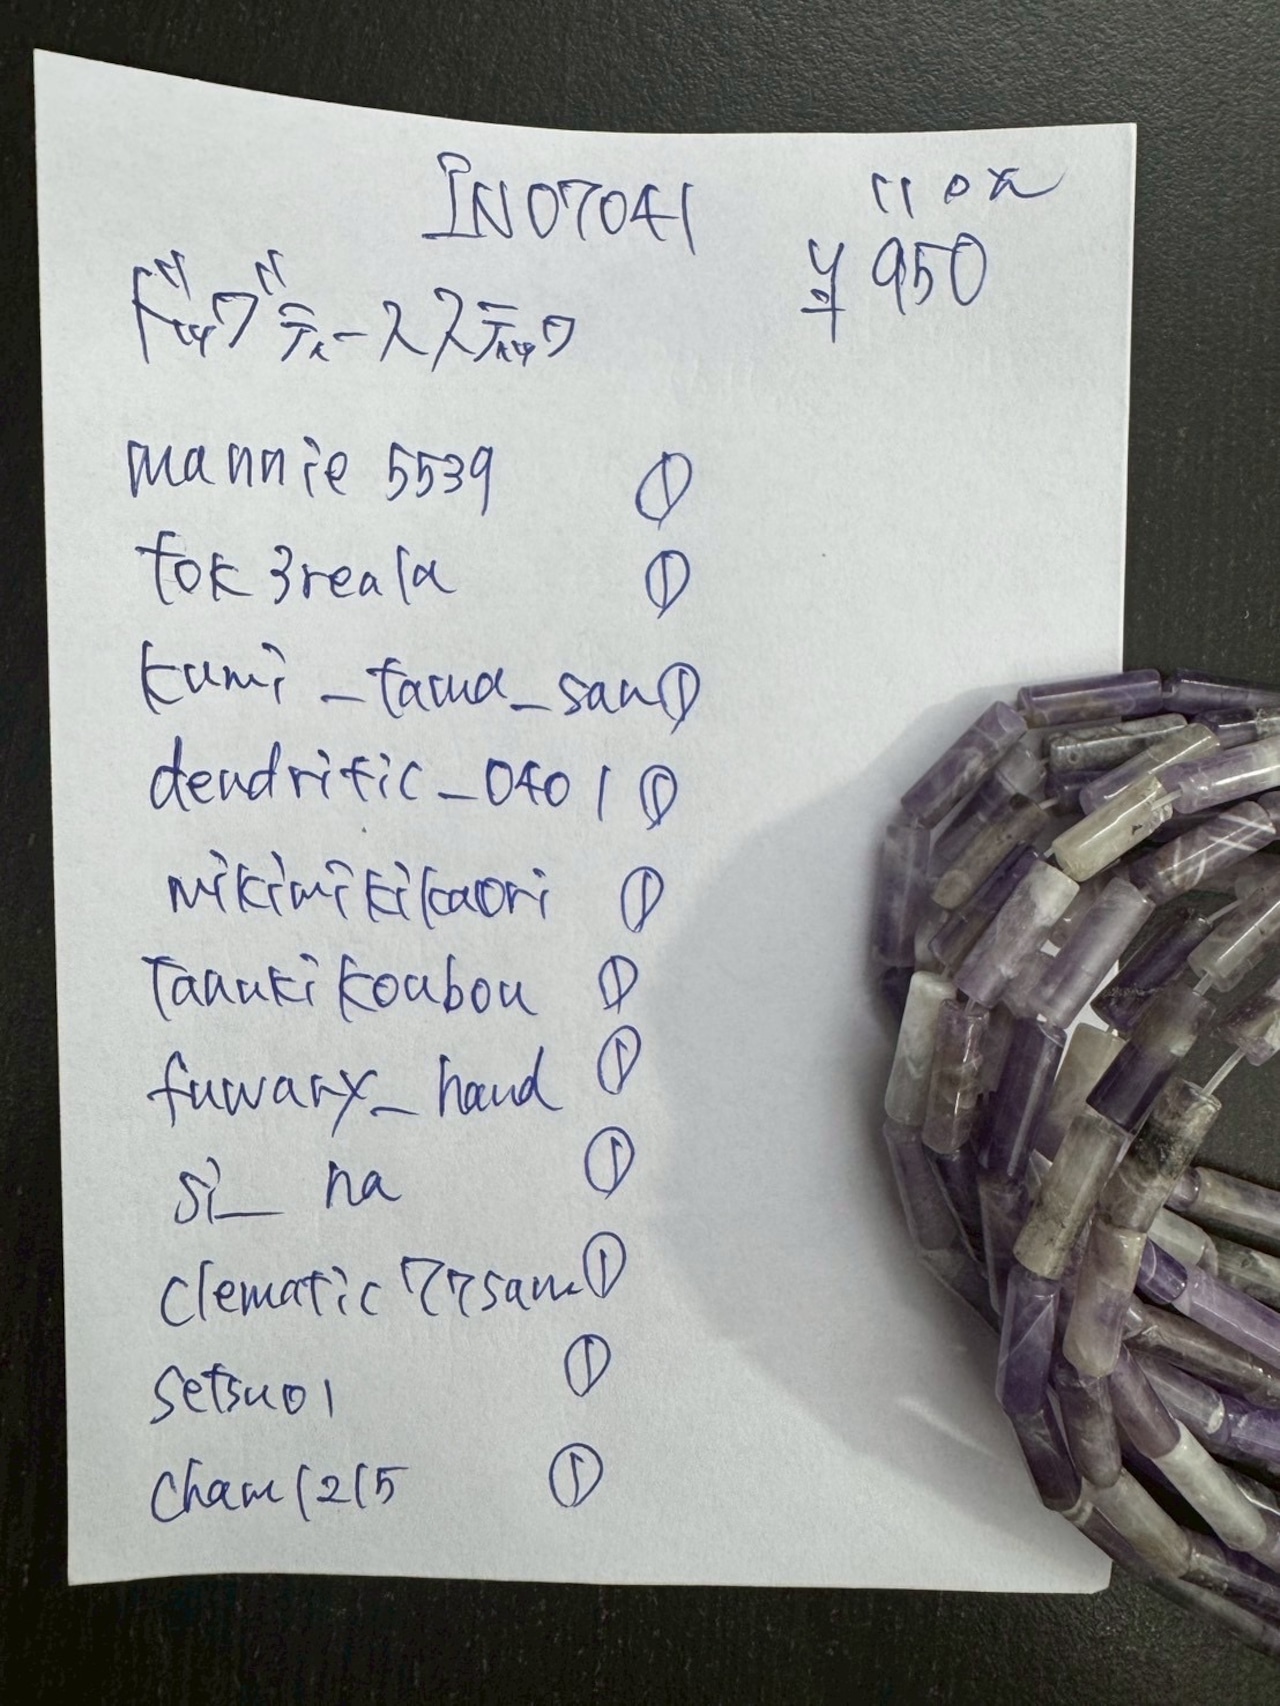 IN07041
11 pス
¥950
ドッグティーススティック
mannie 5539 ①
tok3reala ①
kumi_tama_san ①
dendritic_0401 ①
mikimikikaori ①
tanukikoubou ①
fuwary_hand ①
si_ na ①
clematic77sam ①
setsu01 ①
cham1215 ①